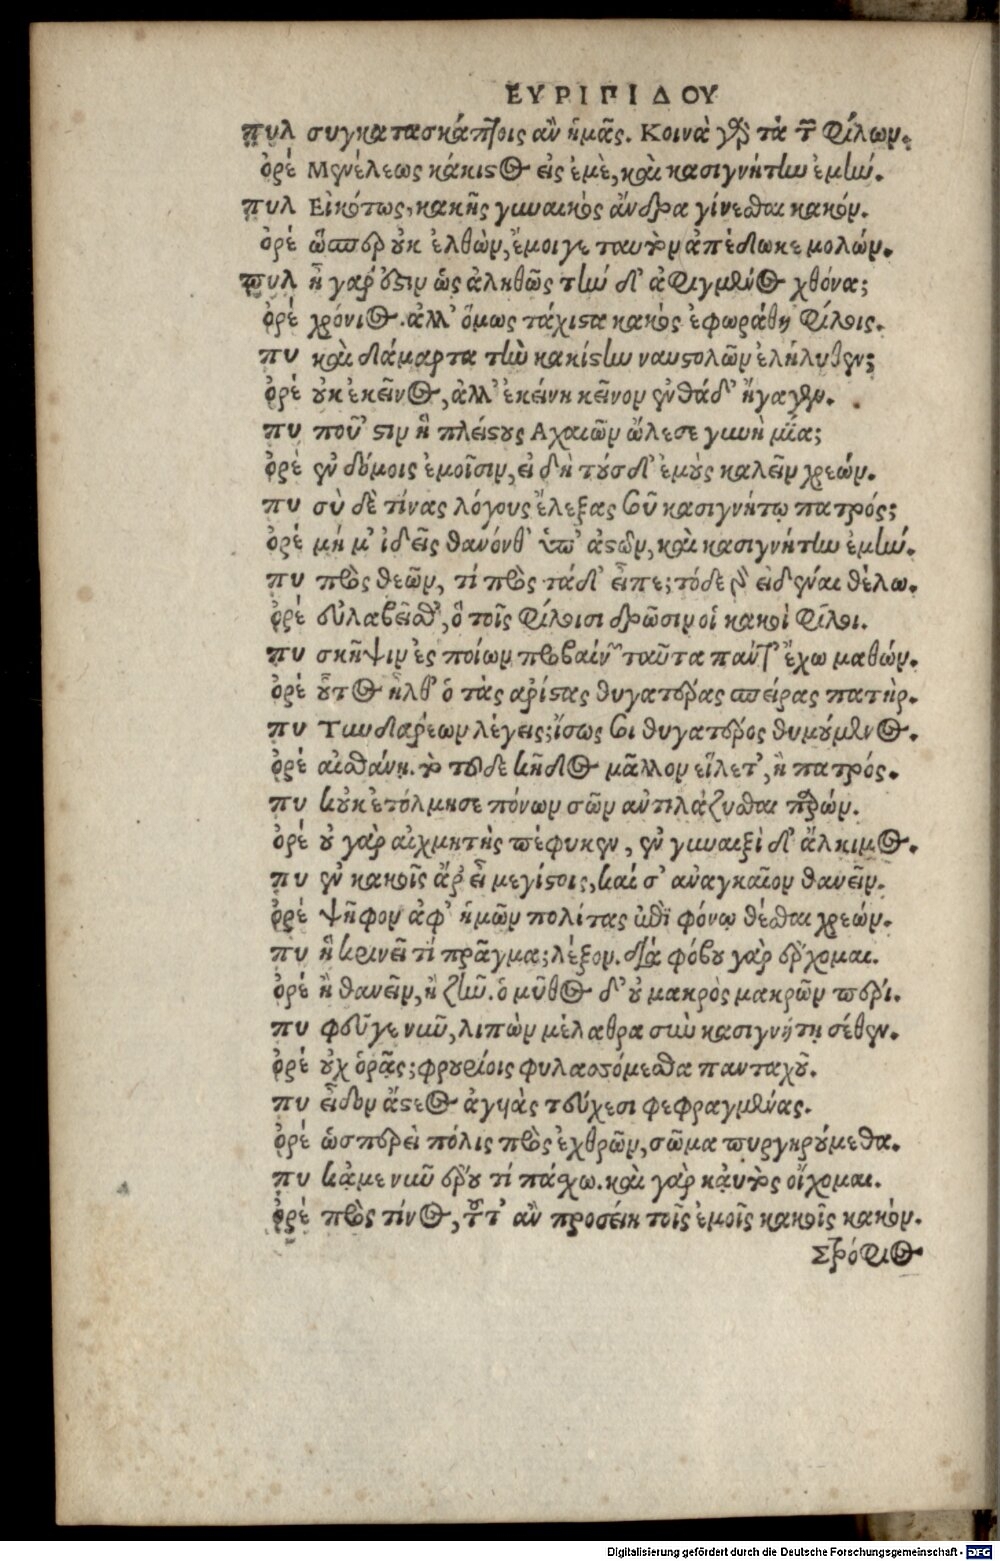 ΕΥΡΙΠΙΔΟΥ
πυλ συγκατασκάπτοις ἂν ἡμᾶς. Κοινὰ γὰρ τὰ τῶν φίλων.
ὀρέ Μενέλεως κάκιστος εἰς ἐμὲ, καὶ κασιγνήτην ἐμήν.
πυλ Εἰκότως, κακῆς γυναικὸς ἄνδρα γίνεσθαι κακόν.
ὀρέ ὥσπερ οὐκ ἐλθὼν, ἔμοιγε ταυτὸν ἀπέδωκε μολών.
πυλ ἦ γάρ ἐστιν ὡς ἀληθῶς τήνδ' ἀφιγμένος χθόνα;
ὀρέ χρόνιος. ἀλλ' ὅμως τάχιστα κακὸς ἐφωράθη φίλοις.
πυ καὶ δάμαρτα τὴν κακίστην ναυστολῶν ἐλήλυθεν;
ὀρέ οὐκ ἐκεῖνος, ἀλλ' ἐκείνη κεῖνον ἐνθάδ' ἤγαγεν.
πυ ποῦ 'στιν ἣ πλείστους Αχαιῶν ὤλεσε γυνὴ μία;
ὀρέ ἐν δόμοις ἐμοῖσιν, εἰ δὴ τούσδ' ἐμοὺς καλεῖν χρεών.
πυ σὺ δὲ τίνας λόγους ἔλεξας σοῦ κασιγνήτῳ πατρός;
ὀρέ μή μ' ἰδεῖς θανόνθ' ὑπ' ἀστῶν, καὶ κασιγνήτην ἐμήν.
πυ πρὸς θεῶν, τί πρὸς τάδ' εἶπε; τόδε γὰρ εἰδέναι θέλω.
ὀρέ εὐλαβεῖσθ', ὃ τοῖς φίλοισι δρῶσιν οἱ κακοὶ φίλοι.
πυ σκῆψιν ἐς ποίων προβαίνων ταῦτα πάντ' ἔχω μαθών.
ὀρέ οὗτος ἦλθ' ὁ τὰς ἀρίστας θυγατέρας σπείρας πατὴρ.
πυ Τυνδαρέων λέγεις; ἴσως σοι θυγατέρος θυμούμενος.
ὀρέ αἰσθάνῃ. τὸ τοῦδε κῆδος μᾶλλον εἵλετ', ἢ πατρός.
πυ κοὐκ ἐτόλμησε πόνων σῶν ἀντιλάζυσθαι παρών.
ὀρέ οὐ γὰρ αἰχμητὴς πέφυκεν, ἐν γυναιξὶ δ' ἄλκιμος.
πυ ἐν κακοῖς ἄρ' εἶ μεγίστοις, καί σ' ἀναγκαῖον θανεῖν.
ὀρέ ψῆφον ἀφ' ἡμῶν πολίτας ἐπὶ φόνῳ θέσθαι χρεών.
πυ ἣ κρινεῖ τί πρᾶγμα; λέξον. διὰ φόβου γὰρ ἔρχομαι.
ὀρέ ἢ θανεῖν, ἢ ζῆν. ὁ μῦθος δ' οὐ μακρὸς μακρῶν πέρι.
πυ φεῦγε νῦν, λιπὼν μέλαθρα σὺν κασιγνήτῃ σέθεν.
ὀρέ οὐχ ὁρᾷς; φρουρίοις φυλασσόμεσθα πανταχοῦ.
πυ εἶδον ἄστεος ἀγυιὰς τεύχεσι φεφραγμένας.
ὀρέ ὡσπερεὶ πόλις πρὸς ἐχθρῶν, σῶμα πυργηρούμεθα.
πυ κἀμε νῦν ἐροῦ τί πάσχω. καὶ γὰρ καὐτὸς οἴχομαι.
ὀρέ πρὸς τίνος, τοῦτ' ἂν προσείη τοῖς ἐμοῖς κακοῖς κακόν.
Στρόφιος
Digitalisierung gefördert durch die Deutsche Forschungsgemeinschaft - DFG